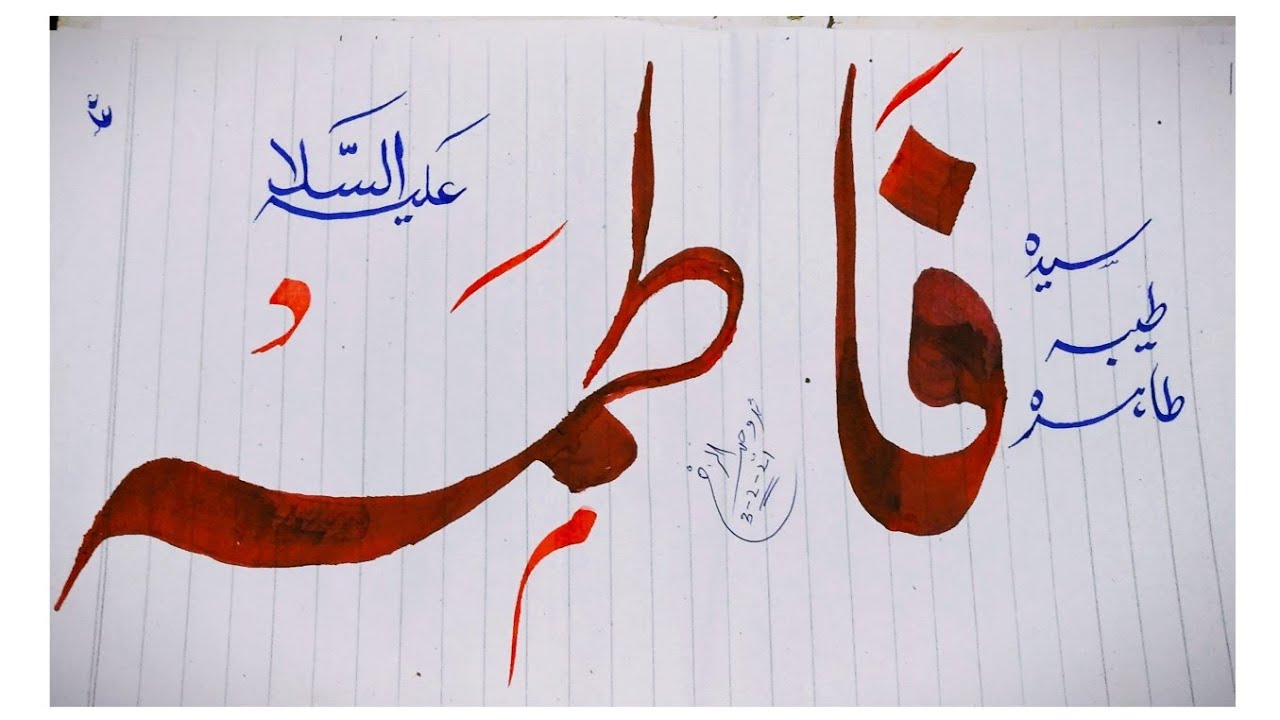 سیدہ
طیبہ
طاہرہ
فَاطمَہ
علیہ السّلا
3-2-21